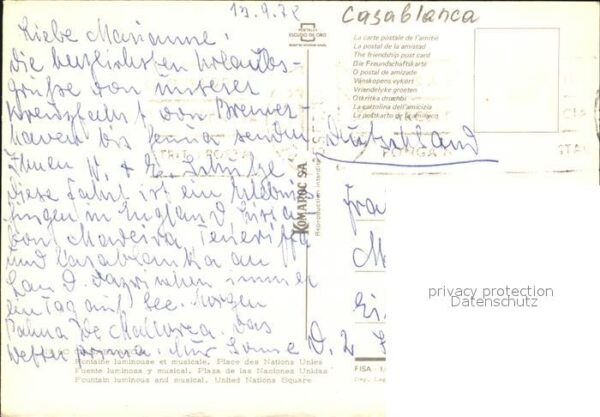 13.9.78
Casablanca
Liebe Marianne!
die herzlichsten Urlaubs-
grüße von unserer
Kreuzfahrt von Bremer-
haven bis Genua senden
Ihnen W. &
diese Fahrt ist ein Erlebnis
gingen in England
von Madeira, Teneriffa
und Casablanka an
Land. dazwischen immer
ein Tag auf See. Morgen
Palma de Mallorca. das
Wetter prima. Nur Sonne
POSTALES
ESCUDO DE ORO
La carte postale de l'amitié
La postal de la amistad
The friendship post card
Die Freundschaftskarte
O postal de amizade
Vänskapens vykort
Vriendelyke groeten
Otkritka druzhbi
La cartolina dell'amicizia
Deutschland
KOMAROC SA
Reproduction interdite
Fra
M
Ei
privacy protection
Datenschutz
Fontaine lumineuse et musicale. Place des Nations Unies
Fuente luminosa y musical. Plaza de las Naciones Unidas
Fountain luminous and musical. United Nations Square
FISA